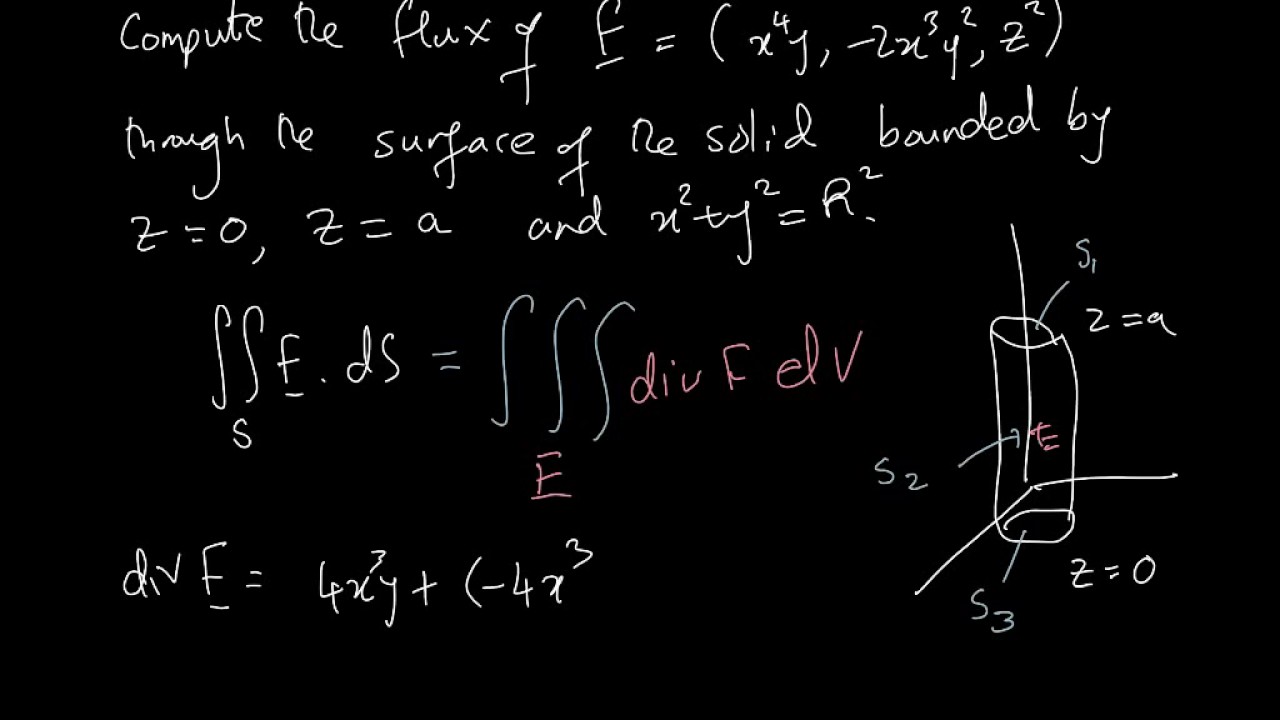 Compute the flux of F = (x⁴y, -2x³y², z²)
through the surface of the solid bounded by
z = 0, z = a and x² + y² = R².
∬_S F . dS = ∭_E div F dV
div F = 4x³y + (-4x³
S₁
z = a
E
S₂
z = 0
S₃